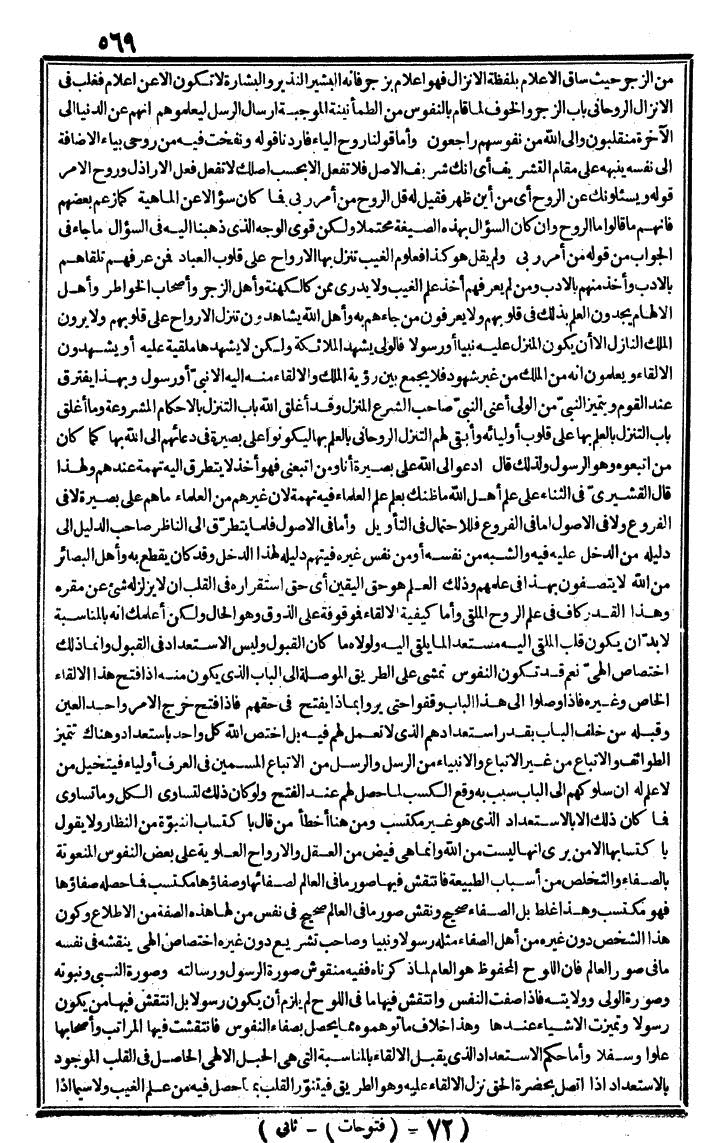 ٥٦٩
من الزجو حيث ساق الاعلام بلفظة الانزال فهو اعلام بزجر فانه البشير النذير والبشارة لا تكون الا عن اعلام فغلب فى
الانزال الروحانى باب الزجر والخوف لما قام بالنفوس من الطمأنينة الموجبة ارسال الرسل ليعلموهم انهم عن الدنيا الى
الآخرة منقلبون والى الله من نفوسهم راجعون وأما قولنا روح الياء فاردنا قوله ونفخت فيه من روحى بياء الاضافة
الى نفسه ينبهه على مقام التشريف أى انك شريف الاصل فلا تفعل الا بحسب اصلك لا تفعل فعل الاراذل وروح الامر
قوله ويسئلونك عن الروح أى من أين ظهر فقيل له قل الروح من أمر ربى فما كان سؤالا عن الماهية كما زعم بعضهم
فانهم ما قالوا ما الروح وان كان السؤال بهذه الصيغة محتملا ولكن قوى الوجه الذى ذهبنا اليه فى السؤال ما جاء فى
الجواب من قوله من أمر ربى ولم يقل هو كذا فعلوم الغيب تنزل بها الارواح على قلوب العباد فمن عرفهم تلقاهم
بالادب وأخذ منهم بالادب ومن لم يعرفهم أخذ علم الغيب ولا يدرى ممن كالكهنة وأهل الزجر وأصحاب الخواطر وأهل
الالهام يجدون العلم بذلك فى قلوبهم ولا يعرفون من جاءهم به وأهل الله يشاهدون تنزل الارواح على قلوبهم ولا يرون
الملك النازل الا أن يكون المنزل عليه نبيا أو رسولا فالولى يشهد الملائكة ولكن لا يشهدها ملقية عليه أو يشهدون
الالقاء ويعلمون انه من الملك من غير شهود فلا يجمع بين رؤية الملك والالقاء منه اليه الا نبى أو رسول وبهذا يفترق
عند القوم ويتميز النبى من الولى أعنى النبى صاحب الشرع المنزل وقد أغلق الله باب التنزل بالاحكام المشروعة وما أغلق
باب التنزل بالعلم بها على قلوب أوليائه وأبقى لهم التنزل الروحانى بالعلم بها ليكونوا على بصيرة فى دعائهم الى الله بها كما كان
من اتبعوه وهو الرسول ولذلك قال ادعو الى الله على بصيرة أنا ومن اتبعنى فهو أخذ لا يتطرق اليه تهمة عندهم ولهذا
قال القشيرى فى الثناء على علم أهل الله ما ظنك بعلم علم العلماء فيه تهمة لان غيرهم من العلماء ما هم على بصيرة لا فى
الفروع ولا فى الاصول اما فى الفروع فللاحتمال فى التأويل وأما فى الاصول فلما يتطرق الى الناظر صاحب الدليل الى
دليله من الدخل عليه فيه والشبه من نفسه أو من نفس غيره فيتهم دليله لهذا الدخل وقد كان يقطع به وأهل البصائر
من الله لا يتصفون بهذا فى علمهم وذلك العلم هو حق اليقين أى حق استقراره فى القلب ان لا يزلزله شئ عن مقره
وهذا القدر كاف فى علم الروح الملقى وأما كيفية الالقاء فموقوفة على الذوق وهو الحال ولكن أعلمك انه بالمناسبة
لا بد أن يكون قلب الملقى اليه مستعدا لما يلقى اليه ولولاه ما كان القبول وليس الاستعداد فى القبول وانما ذلك
اختصاص الهى نعم قد تكون النفوس تمشى على الطريق الموصلة الى الباب الذى يكون منه اذا فتح هذا الالقاء
الخاص وغيره فاذا وصلوا الى هذا الباب وقفوا حتى يروا بماذا يفتح فى حقهم فاذا فتح خرج الامر واحد العين
وقبله من خلف الباب بقدر استعدادهم الذى لا تعمل لهم فيه بل اختص الله كل واحد باستعداد وهناك تتميز
الطوائف والاتباع من غير الاتباع والانبياء من الرسل والرسل من الاتباع المسمين فى العرف أولياء فيتخيل من
لا علم له ان سلوكهم الى الباب سبب به وقع الكسب لما حصل لهم عند الفتح ولو كان ذلك لتساوى الكل وما تساوى
فما كان ذلك الا بالاستعداد الذى هو غير مكتسب ومن هنا أخطأ من قال با كتساب النبوة من النظار ولا يقول
با كتسابها الا من يرى انها ليست من الله وانما هى فيض من العقل والارواح العلوية على بعض النفوس المنعوتة
بالصفاء والتخلص من أسباب الطبيعة فانتقش فيها صور ما فى العالم لصفائها وصفاؤها مكتسب فما حصله صفاؤها
فهو مكتسب وهذا غلط بل الصفاء صحيح ونقش صور ما فى العالم صحيح فى نفس من لها هذه الصفة من الاطلاع وكون
هذا الشخص دون غيره من أهل الصفاء مثله رسولا ونبيا وصاحب تشريع دون غيره اختصاص الهى ينقشه فى نفسه
ما فى صور العالم فان اللوح المحفوظ هو العام لما ذكرناه ففيه منقوش صورة الرسول ورسالته وصورة النبى ونبوته
وصورة الولى وولايته فاذا صفت النفس وانتقش فيها ما فى اللوح لم يلزم أن يكون رسولا بل انتقش فيها من يكون
رسولا وتميزت الاشياء عندها وهذا خلاف ما توهموه مما يحصل بصفاء النفوس فانتقشت فيها المراتب وأصحابها
علوا وسفلا وأما حكم الاستعداد الذى يقبل الالقاء بالمناسبة التى هى الحبل الالهى الحاصل فى القلب الموجود
بالاستعداد اذا اتصل بحضرة الحق نزل الالقاء عليه وهو الطريق فيتنور القلب بما حصل فيه من علم الغيب ولا سيما اذا
( ٧٢ - (فتوحات) - ثانى )